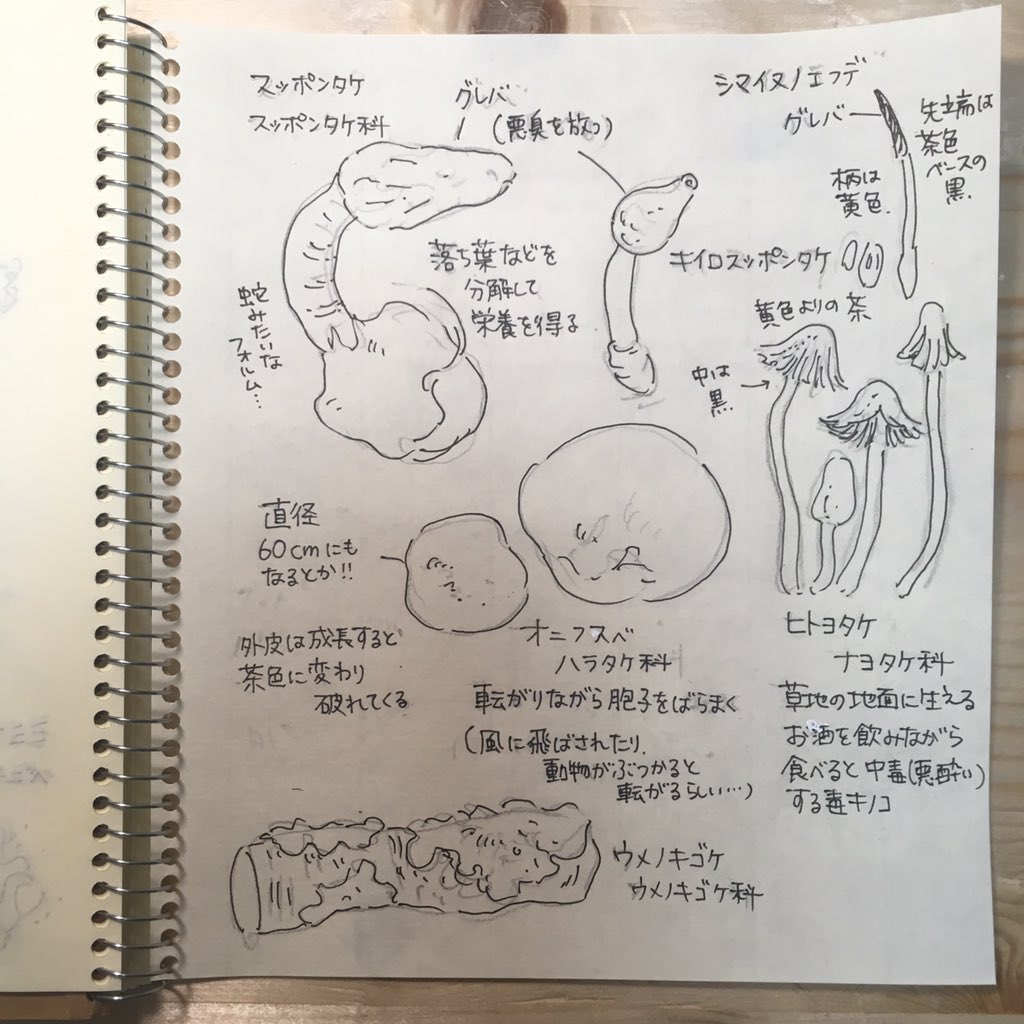 スッポンタケ
スッポンタケ科
グレバ
(悪臭を放つ)
落ち葉などを
分解して
栄養を得る
蛇みたいな
フォルム…
シマイヌノエフデ
グレバ
先端は
茶色
ベースの
黒
柄は
黄色.
キイロスッポンタケ
黄色よりの茶
中は
黒
直径
60cmにも
なるとか!!
外皮は成長すると
茶色に変わり
破れてくる
オニフスベ
ハラタケ科
転がりながら胞子をばらまく
(風に飛ばされたり、
動物がぶつかると
転がるらしい…)
ヒトヨタケ
ナヨタケ科
草地の地面に生える
お酒を飲みながら
食べると中毒(悪酔い)
する毒キノコ
ウメノキゴケ
ウメノキゴケ科